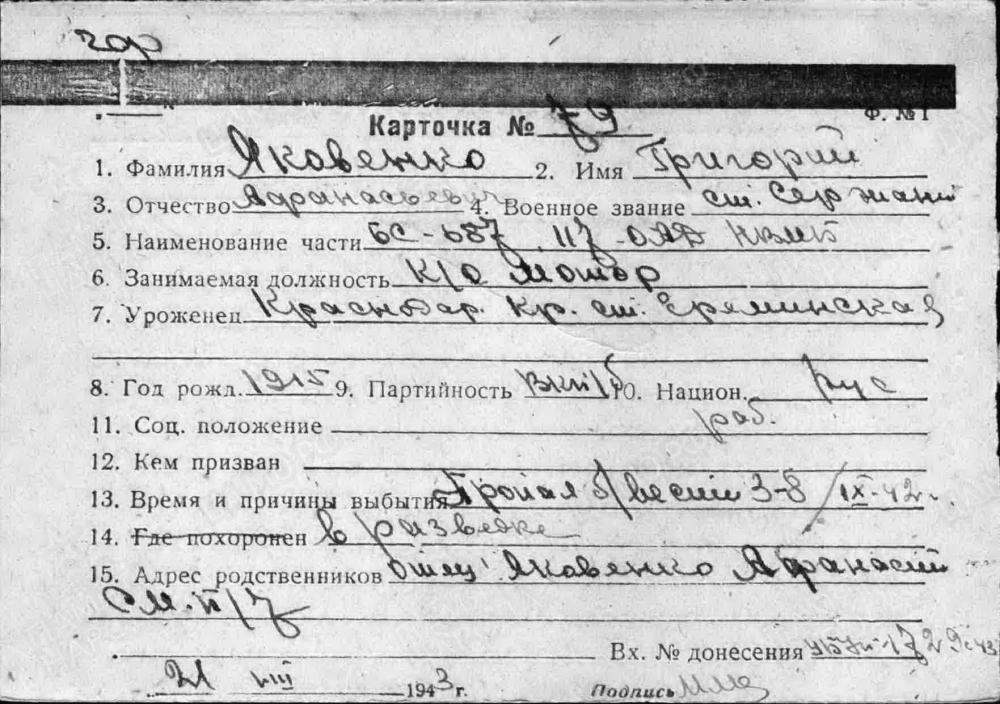 гор
Ф. №1
Карточка № 79
1. Фамилия Яковенко 2. Имя Григорий
3. Отчество Афанасьевич 4. Военное звание ст. Сержант
5. Наименование части БС-687, 117-ОАД НКМБ
6. Занимаемая должность К/О Мотор
7. Уроженец Краснодар. Кр. ст. Ереминская
8. Год рожд. 1915 9. Партийность ВКП/б 10. Национ. рус
11. Соц. положение раб.
12. Кем призван
13. Время и причины выбытия Пропал б/вести 3-8/IX-42г.
14. Где похоронен в разведке
15. Адрес родственников отец Яковенко Афанасий
См. п/7
Вх. № донесения
21 VIII 1943 г. Подпись